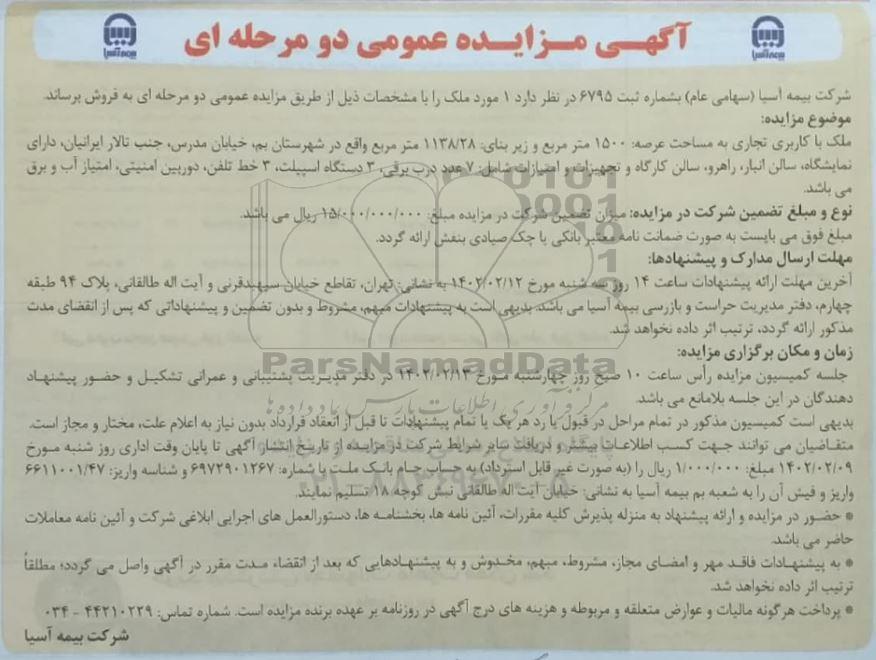 آگهی مزایده عمومی دو مرحله ای
بیمه آسیا
بیمه آسیا
شرکت بیمه آسیا (سهامی عام) بشماره ثبت ۶۷۹۵ در نظر دارد ۱ مورد ملک را با مشخصات ذیل از طریق مزایده عمومی دو مرحله ای به فروش برساند.
موضوع مزایده:
ملک با کاربری تجاری به مساحت عرصه: ۱۵۰۰ متر مربع و زیر بنای: ۱۱۳۸/۲۸ متر مربع واقع در شهرستان بم، خیابان مدرس، جنب تالار ایرانیان، دارای
نمایشگاه، سالن انبار، راهرو، سالن کارگاه و تجهیزات و امتیازات شامل: ۷ عدد درب برقی، ۳ دستگاه اسپیلت، ۳ خط تلفن، دوربین امنیتی، امتیاز آب و برق
می باشد.
نوع و مبلغ تضمین شرکت در مزایده: میزان تضمین شرکت در مزایده مبلغ: ۱۵/۰۰۰/۰۰۰/۰۰۰ ریال می باشد.
مبلغ فوق می بایست به صورت ضمانت نامه معتبر بانکی یا چک صیادی بنفش ارائه گردد.
مهلت ارسال مدارک و پیشنهادها:
آخرین مهلت ارائه پیشنهادات ساعت ۱۴ روز سه شنبه مورخ ۱۴۰۲/۰۲/۱۲ به نشانی: تهران، تقاطع خیابان سپهبدقرنی و آیت اله طالقانی، پلاک ۹۴ طبقه
چهارم، دفتر مدیریت حراست و بازرسی بیمه آسیا می باشد. بدیهی است به پیشنهادات مبهم، مشروط و بدون تضمین و پیشنهاداتی که پس از انقضای مدت
مذکور ارائه گردد، ترتیب اثر داده نخواهد شد.
زمان و مکان برگزاری مزایده:
جلسه کمیسیون مزایده رأس ساعت ۱۰ صبح روز چهارشنبه مورخ ۱۴۰۲/۰۲/۱۳ در دفتر مدیریت پشتیبانی و عمرانی تشکیل و حضور پیشنهاد
دهندگان در این جلسه بلامانع می باشد.
بدیهی است کمیسیون مذکور در تمام مراحل در قبول یا رد هر یک یا تمام پیشنهادات تا قبل از انعقاد قرارداد بدون نیاز به اعلام علت، مختار و مجاز است.
متقاضیان می توانند جهت کسب اطلاعات بیشتر و دریافت سایر شرایط شرکت در مزایده از تاریخ انتشار آگهی تا پایان وقت اداری روز شنبه مورخ
۱۴۰۲/۰۲/۰۹ مبلغ: ۱/۰۰۰/۰۰۰ ریال را (به صورت غیر قابل استرداد) به حساب جام بانک ملت با شماره: ۶۹۷۲۹۰۱۲۶۷ و شناسه واریز: ۶۶۱۱۰۰۱/۴۷
واریز و فیش آن را به شعبه بم بیمه آسیا به نشانی: خیابان آیت اله طالقانی نبش کوچه ۱۸ تسلیم نمایند.
* حضور در مزایده و ارائه پیشنهاد به منزله پذیرش کلیه مقررات، آئین نامه ها، بخشنامه ها، دستورالعمل های اجرایی ابلاغی شرکت و آئین نامه معاملات
حاضر می باشد.
* به پیشنهادات فاقد مهر و امضای مجاز، مشروط، مبهم، مخدوش و به پیشنهادهایی که بعد از انقضاء مدت مقرر در آگهی واصل می گردد؛ مطلقاً
ترتیب اثر داده نخواهد شد.
* پرداخت هرگونه مالیات و عوارض متعلقه و مربوطه و هزینه های درج آگهی در روزنامه بر عهده برنده مزایده است. شماره تماس: ۴۴۲۱۰۲۲۹ - ۰۳۴
شرکت بیمه آسیا
ParsNamadData
مرکز فرآوری اطلاعات پارس نماد داده ها